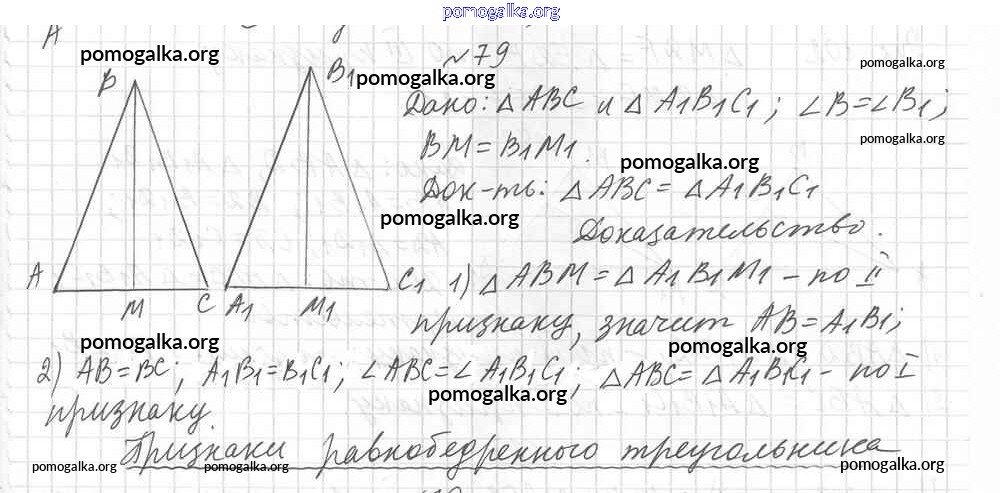 pomogalka.org
А
№79
pomogalka.org
pomogalka.org
pomogalka.org
B
B1
Дано: △ ABC и △ A1B1C1; ∠B=∠B1;
pomogalka.org
BM = B1M1.
pomogalka.org
Док-ть: △ ABC = △ A1B1C1
pomogalka.org
Доказательство.
A
M
C
A1
M1
C1
1) △ ABM = △ A1B1M1 – по II
признаку, значит AB = A1B1;
pomogalka.org
pomogalka.org
2) AB = BC; A1B1 = B1C1; ∠ABC = ∠A1B1C1; △ABC = △A1B1C1 – по I
pomogalka.org
признаку.
Признаки равнобедренного треугольника
pomogalka.org
pomogalka.org
pomogalka.org